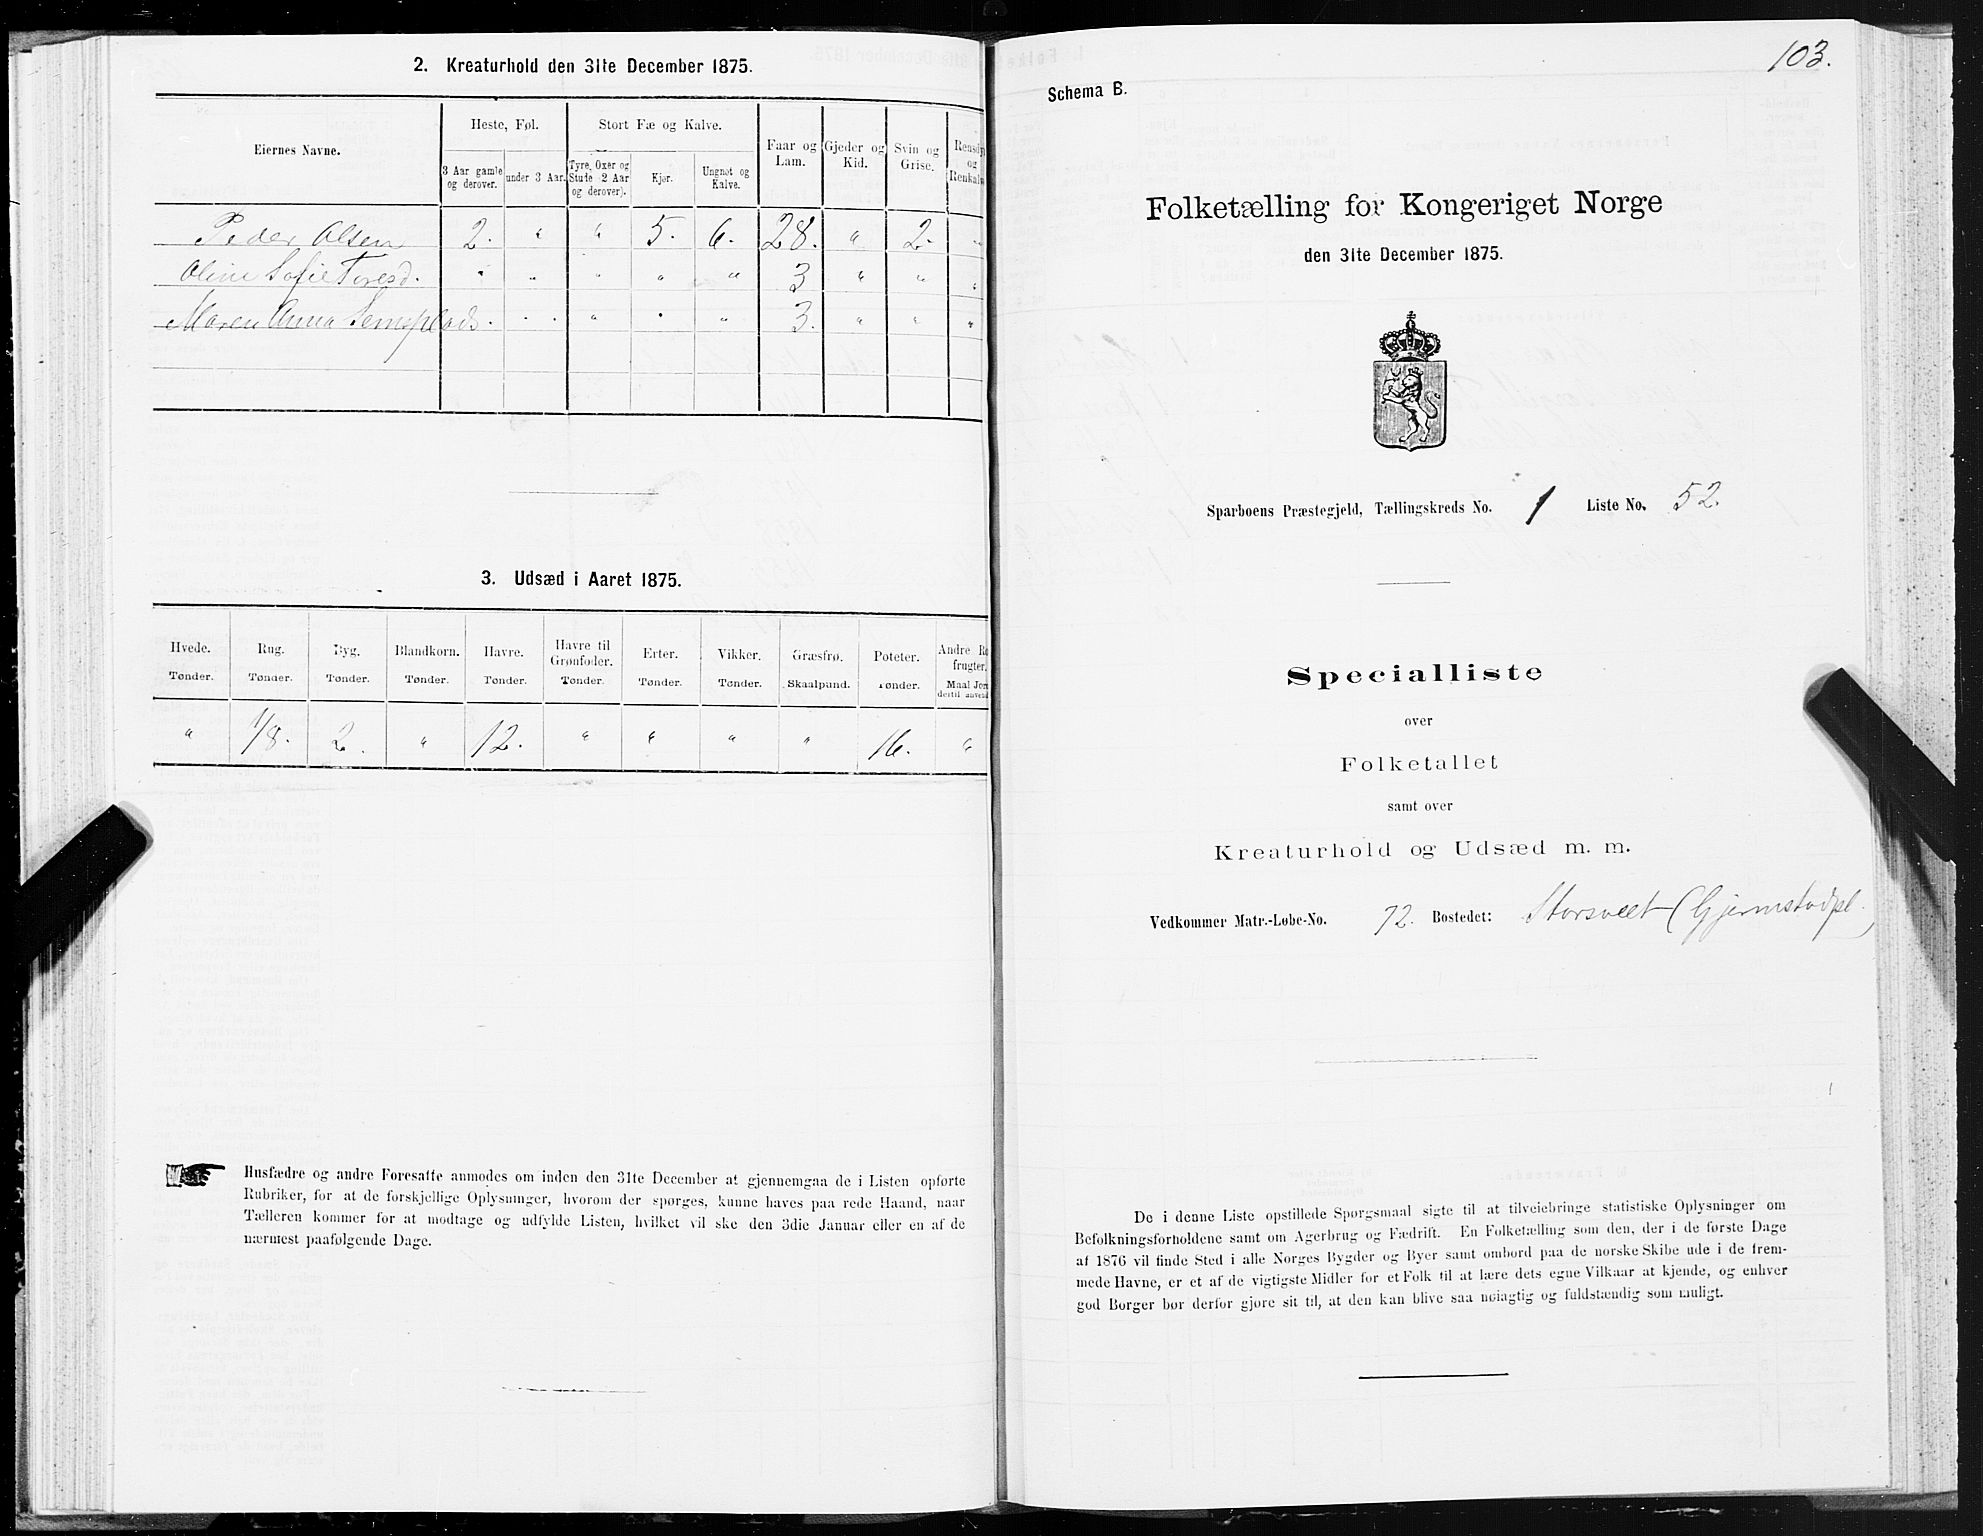 2. Kreaturhold den 31te December 1875.
Eiernes Navne.
Heste, Føl.
Stort Fæ og Kalve.
Faar og Lam.
Gjeder og Kid.
Svin og Grise.
Rensdy og Renkalv
3 Aar gamle og derover.
under 3 Aar.
Tyre, Oxer og Stute (2 Aar og derover).
Kjør.
Ungnøt og Kalve.
Peder Olsen 2. " " 5. 6. 28. " 2. "
Oline Sofie Toresd. " " " " " 3 " " "
Maren Anna " " " " " 3. " " "
3. Udsæd i Aaret 1875.
Hvede. Rug. Byg. Blandkorn. Havre. Havre til Grønfoder. Erter. Vikker. Græsfrø. Poteter. Andre Ro frugter.
Tønder. Tønder. Tønder. Tønder. Tønder. Tønder. Tønder. Tønder. Skaalpund. Tønder. Maal Jor dertil anvend
" 1/8. 2. " 12. " " " " 16. "
Husfædre og andre Foresatte anmodes om inden den 31te December at gjennemgaa de i Listen opførte
Rubriker, for at de forskjellige Oplysninger, hvorom der spørges, kunne haves paa rede Haand, naar
Tælleren kommer for at modtage og udfylde Listen, hvilket vil ske den 3die Januar eller en af de
nærmest paafølgende Dage.
103.
Schema B.
Folketælling for Kongeriget Norge
den 31te December 1875.
Sparboens Præstegjeld, Tællingskreds No. 1 Liste No. 52.
Specialliste
over
Folketallet
samt over
Kreaturhold og Udsæd m. m.
Vedkommer Matr.-Løbe-No. 72. Bostedet: Storsveet (Gjermstadpl.)
De i denne Liste opstillede Spørgsmaal sigte til at tilveiebringe statistiske Oplysninger om
Befolkningsforholdene samt om Agerbrug og Fædrift. En Folketælling som den, der i de første Dage
af 1876 vil finde Sted i alle Norges Bygder og Byer samt ombord paa de norske Skibe ude i de frem-
mede Havne, er et af de vigtigste Midler for et Folk til at lære dets egne Vilkaar at kjende, og enhver
god Borger bør derfor gjøre sit til, at den kan blive saa nøiagtig og fuldstændig som muligt.